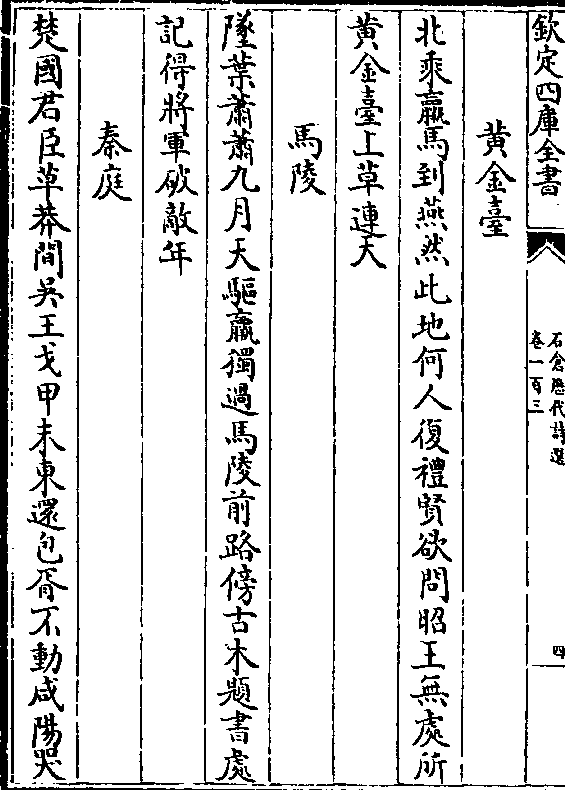 欽定四庫全書
石倉歷代詩選
卷一百三
四
黄金臺
北乘羸馬到燕然此地何人復禮賢欲問昭王無處所
黄金臺上草連天
馬陵
墜葉蕭蕭九月天驅羸獨過馬陵前路傍古木題書處
記得將軍破敵年
秦庭
楚國君臣草莽間吳王戈甲未東還包胥不動咸陽哭